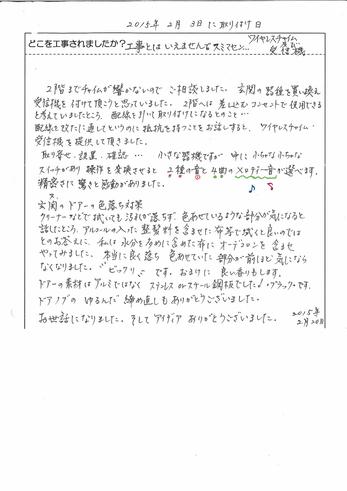 2015年 2月 3日に取り付け日
どこを工事されましたか？工事とは いえませんでスミマセン… ワイヤレスチャイム 及び 受信機
2階までチャイムが響かないので ご相談しました。玄関の器種を買い換え
受信機を付けて頂こうと思っていました。2階へは 差し込むコンセントで使用できる
と考えていましたところ、配線を引いて取り付けになるとのこと…
配線を 通してというのに 抵抗を持つことをお話しすると、ワイヤレスチャイム・
受信機を提供して頂きました。
取り寄せ・設置・確認… 小さな器機ですが 中に 小ちゃな小ちゃな
スイッチがあり 操作を変換させると 2種の音と4曲のメロディー音が選べます。
精密さに 驚きと感動がありました。
玄関のドアーの色落ち対策
クリーナーなどで拭いても汚れが落ちず、色あせているような部分が気になると
話したところ、アルコールの入った整髪料を含ませた布等で拭くと良いのでは
とのお答えに、私は 水分を多めに含めた布に オーデコロンを含ませ
やってみました。本当に良く落ち 色あせていた部分が前ほど気になら
なくなりました。"ビックリ" です。おまけに 良い香りもします。
ドアーの素材はアルミではなく ステンレス or スチール鋼板でした！・ブラック・です。
ドアノブの ゆるんだ締め直しもありがとうございました。
お世話になりました。そして アイディア ありがとうございました。
2015年
2月20日